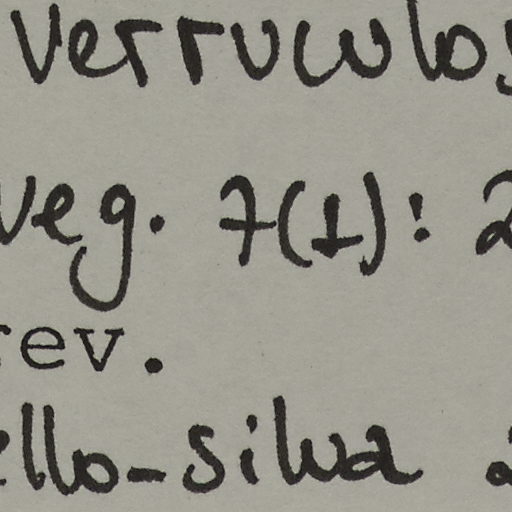 verruculos
veg. 7(1): 2
rev.
ello-Silva 2